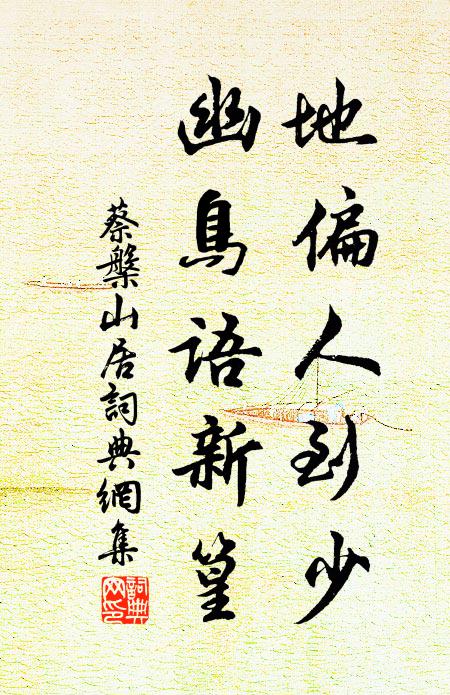 地偏人到少
幽鳥語新篁
蔡槃山居詞典網集
詞典網印